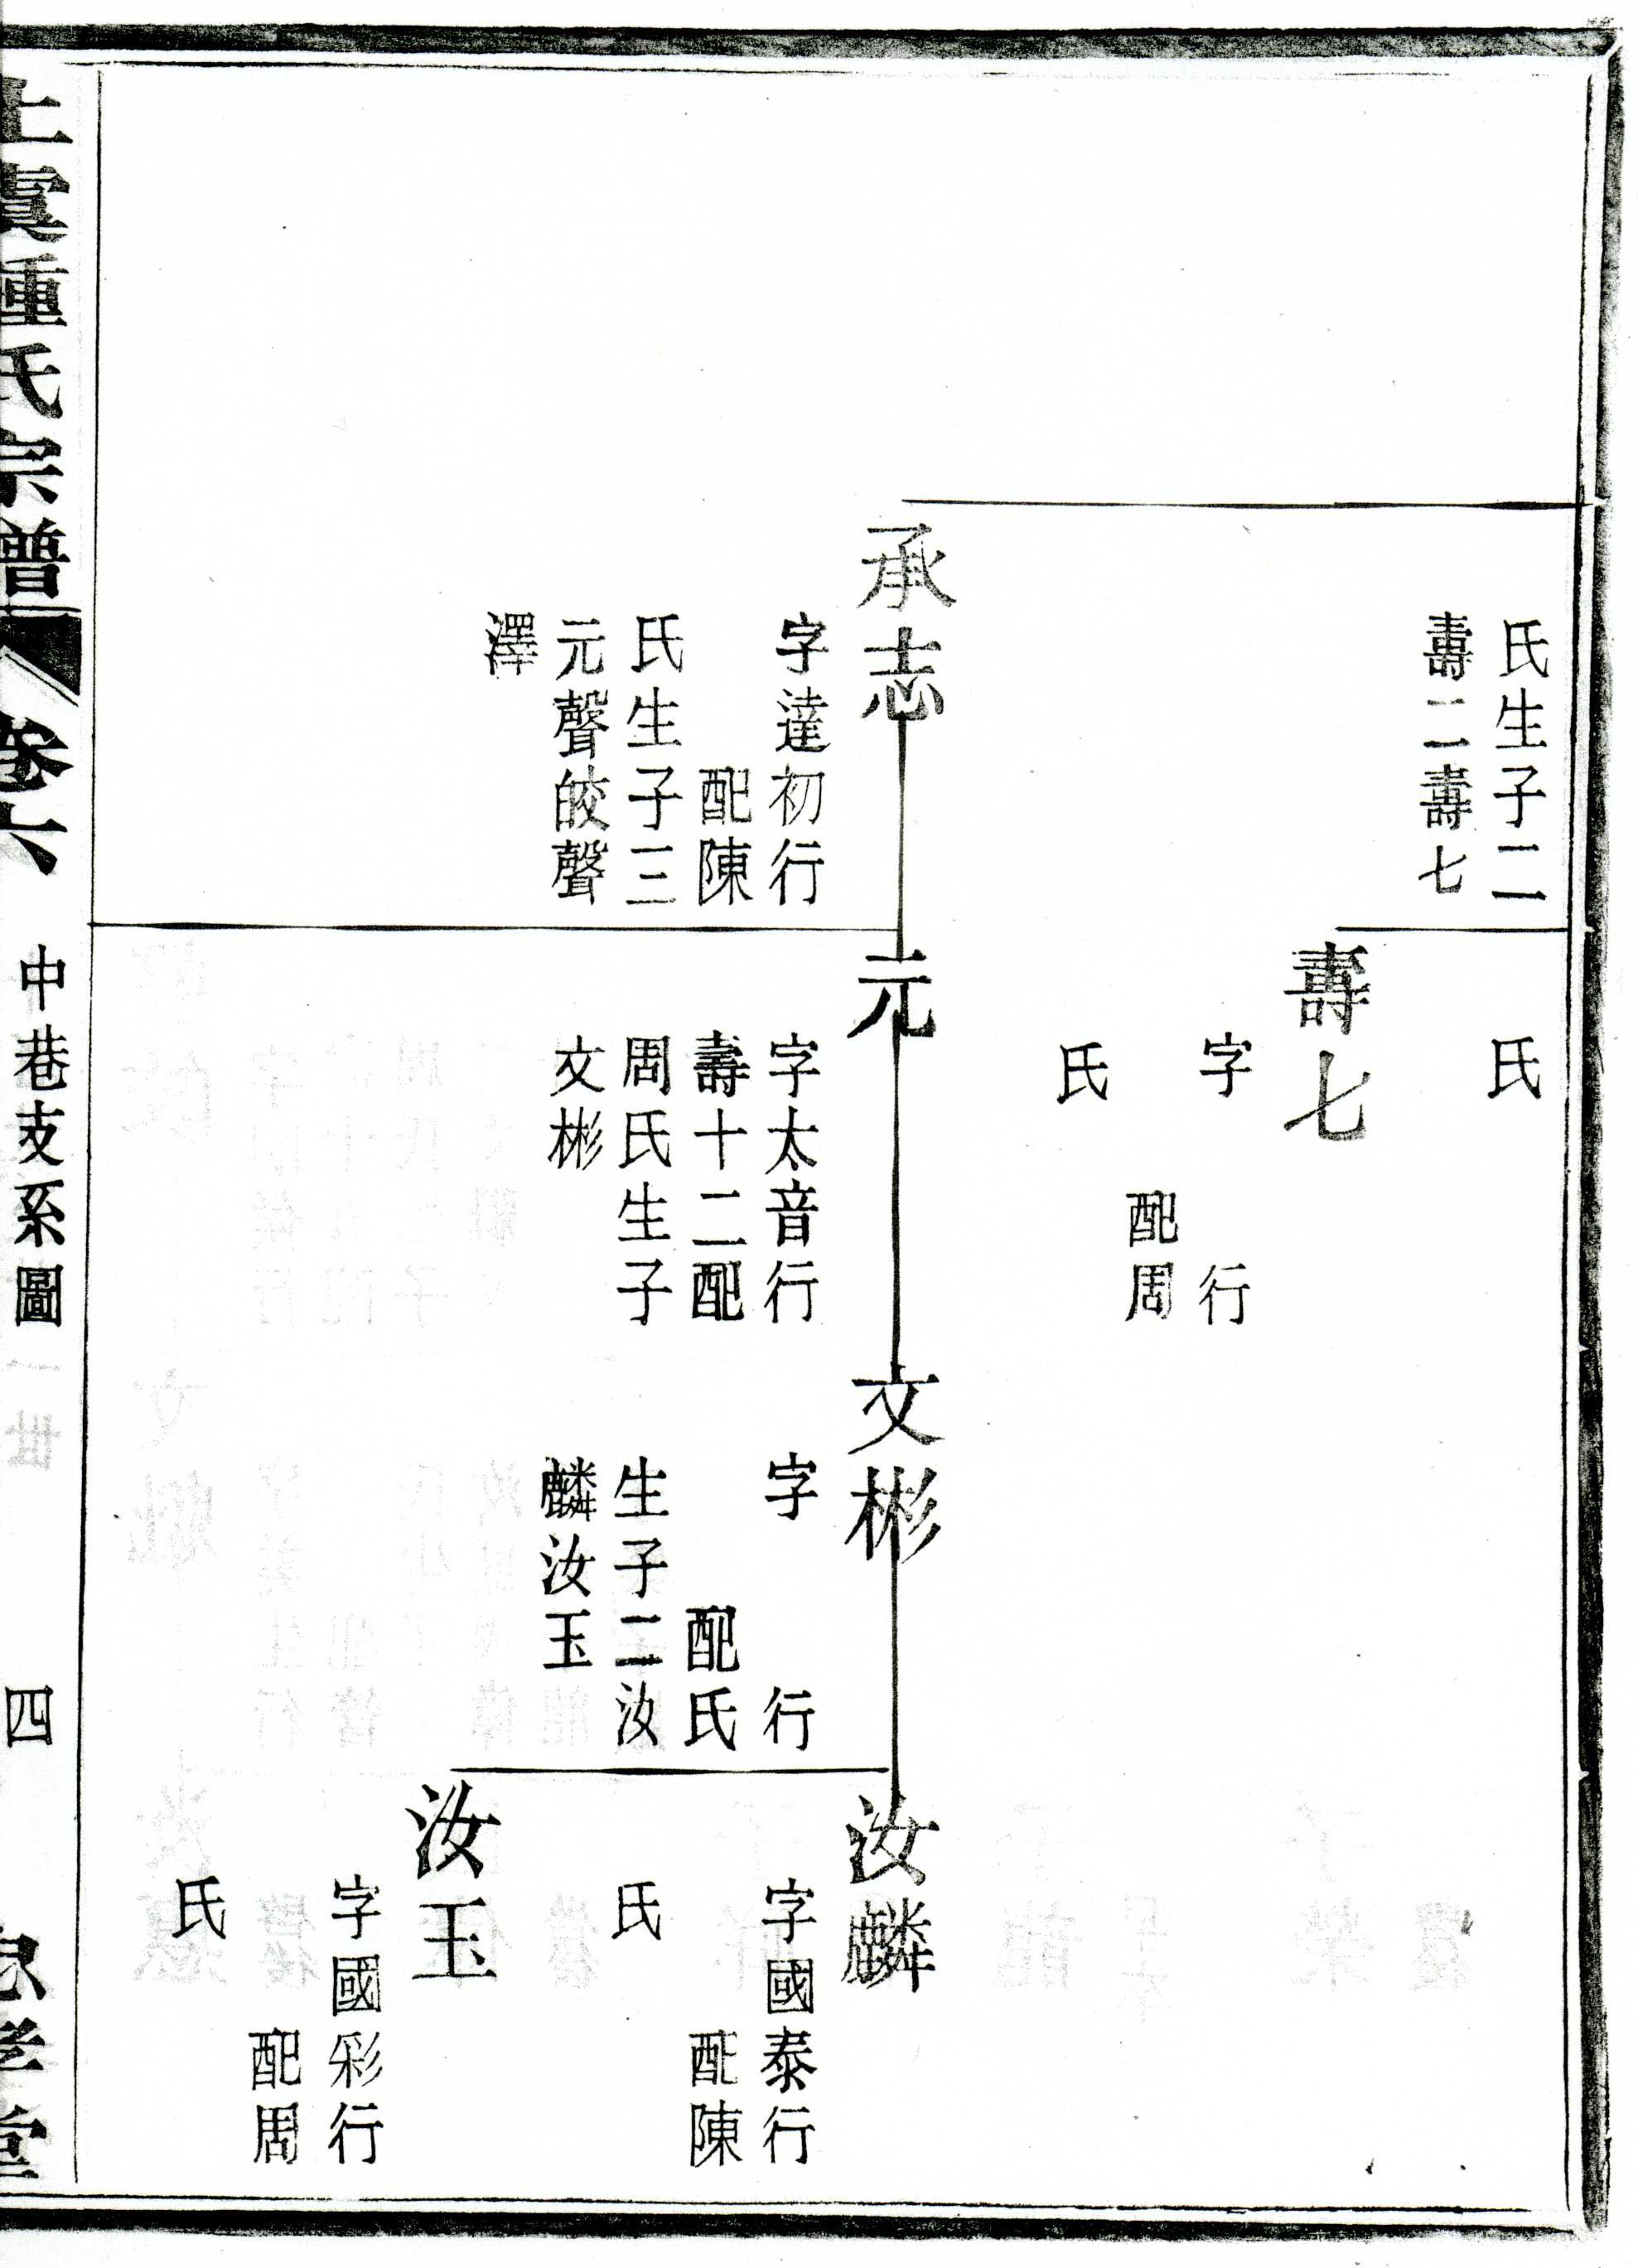 氏生子二
壽二壽七
氏
壽七
字　行
配周
氏
承志
字達初行
配陳
氏生子三
元聲皎聲
澤
元
字太音行
壽十二配
周氏生子
文彬
文彬
字　行
配氏
生子二汝
麟汝玉
汝麟
字國泰行
配陳
氏
汝玉
字國彩行
配周
氏
上虞種氏宗譜
卷六
中巷支系圖
四
忠孝堂